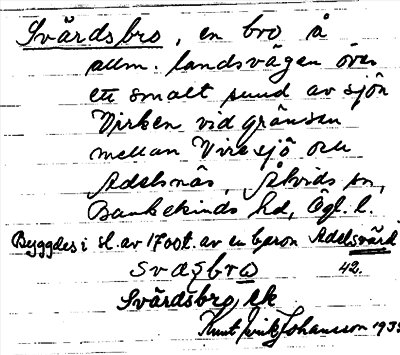 Svärdsbro, en bro å
allm. landsvägen över
ett smalt sund av sjön
Virken vid gränsen
mellan Viresjö och
Adelsnäs, Åtvids sn,
Bankekinds hd, Ögl. l.
Byggdes i sl. av 1700t. av en baron Adelsvärd
42.
Svärdsbro, lk
Knut Johansson 193